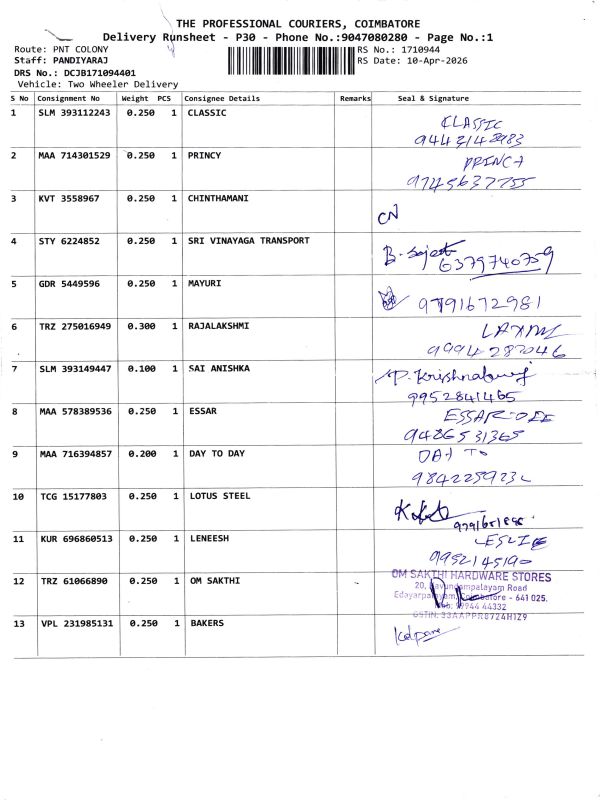 THE PROFESSIONAL COURIERS, COIMBATORE
Delivery Runsheet - P30 - Phone No.:9047080280 - Page No.:1
Route: PNT COLONY
RS No.: 1710944
Staff: PANDIYARAJ
RS Date: 10-Apr-2026
DRS No.: DCJB171094401
Vehicle: Two Wheeler Delivery
S No Consignment No Weight PCS Consignee Details Remarks Seal & Signature
1 SLM 393112243 0.250 1 CLASSIC
CLASSIC
2 MAA 714301529 0.250 1 PRINCY
9745637755
3 KVT 3558967 0.250 1 CHINTHAMANI
CN
4 STY 6224852 0.250 1 SRI VINAYAGA TRANSPORT
6379740759
5 GDR 5449596 0.250 1 MAYURI
9791672981
6 TRZ 275016949 0.300 1 RAJALAKSHMI
9994287046
7 SLM 393149447 0.100 1 SAI ANISHKA
9952841465
8 MAA 578389536 0.250 1 ESSAR
9486531365
9 MAA 716394857 0.200 1 DAY TO DAY
DAY TO
10 TCG 15177803 0.250 1 LOTUS STEEL
11 KUR 696860513 0.250 1 LENEESH
LESLIE
12 TRZ 61066890 0.250 1 OM SAKTHI
OM SAKTHI HARDWARE STORES
13 VPL 231985131 0.250 1 BAKERS
Kalpana